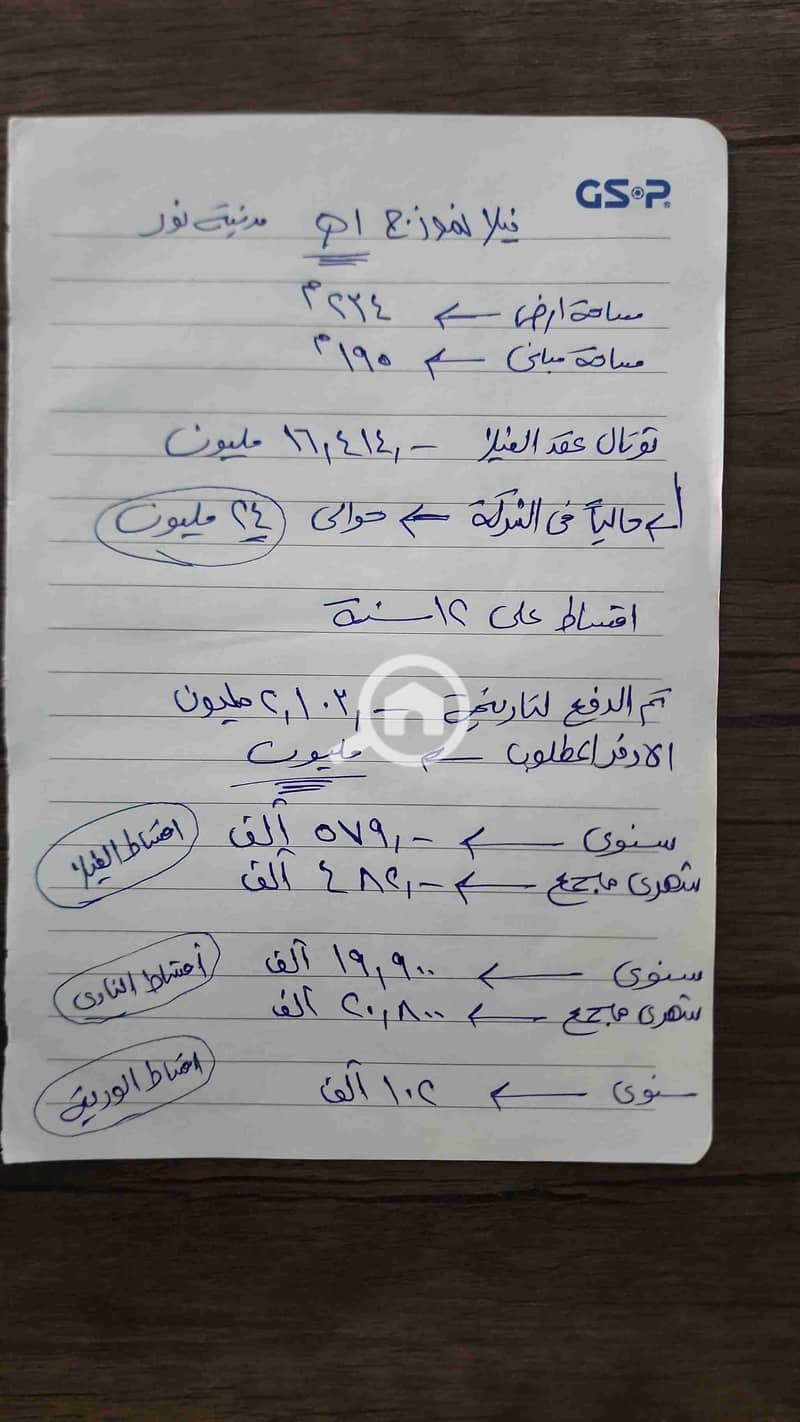 GS•P
فيلا نموذج مدينة نور
مساحة ارض ← ٢٣٤ م
مساحة مباني ← ١٩٥ م
توتال عقد الفيلا ١٦,٤١٤,- مليون
حالياً فى الشركة ← حوالى ٢٤ مليون
اقساط على ١٢ سنة
تم الدفع لتاريخه ٢,١٠٢,- مليون
الاوفر المطلوب ← مليون
سنوى ← ٥٧٩,- ألف
شهرى مجمع ← ٤٨٢,- ألف
اقساط الفيلا
سنوى ← ١٩,٩٠٠ ألف
شهرى مجمع ← ٢٠,٨٠٠ ألف
أقساط النادى
سنوى ← ١٠٢ ألف
اقساط الوديعة